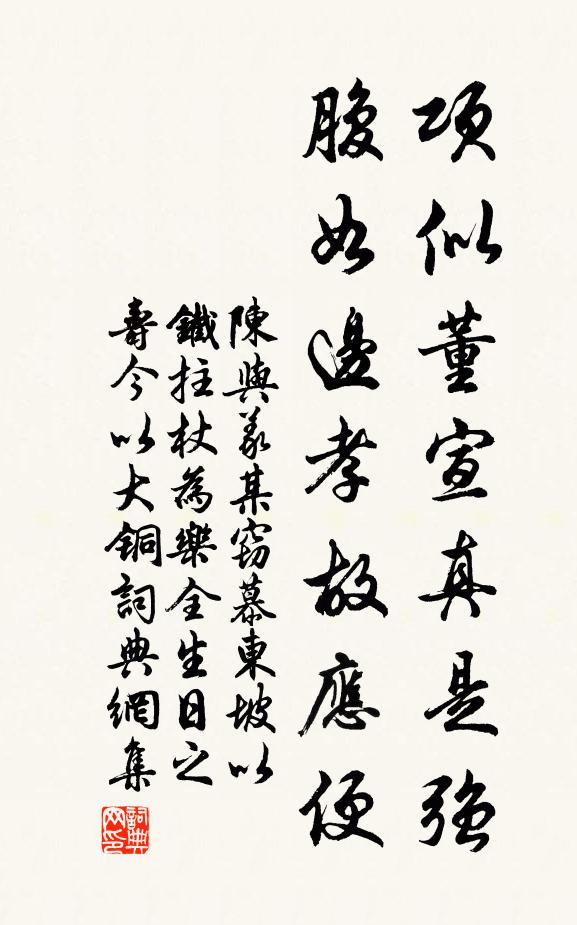 項似董宣真是強
腹如邊孝故應便
陳與義某竊慕東坡以
鐵拄杖為樂全生日之
壽今以大銅詞典網集
詞典
网印